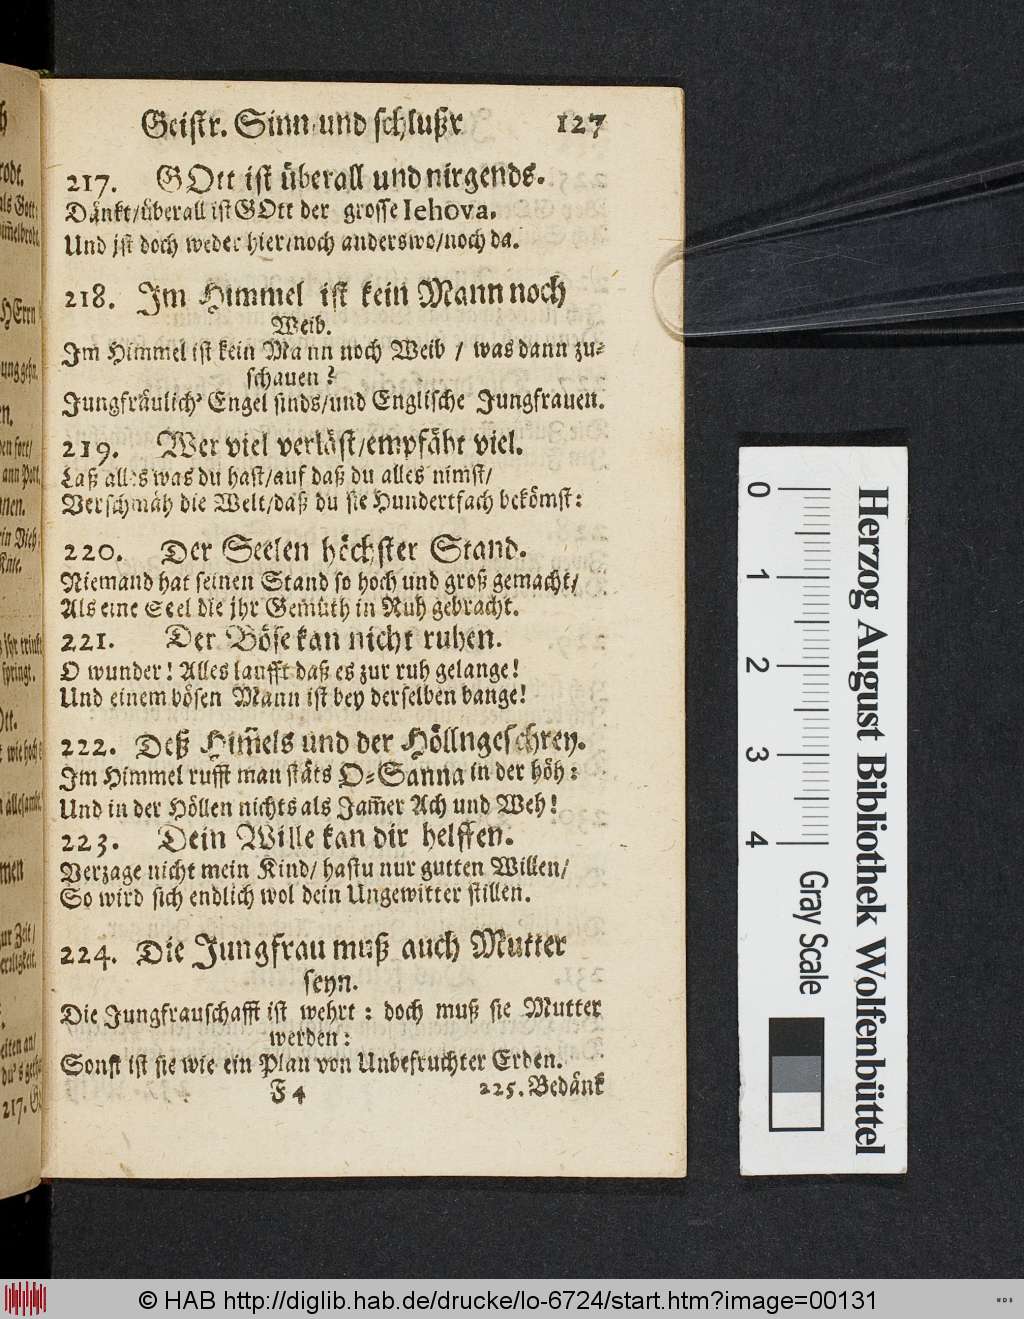 Geistr. Sinn-und schlußr 127
217. GOtt ist überall und nirgends.
Dänkt/überall ist GOtt der grosse Iehova.
Und jst doch weder hier/noch anderswo/noch da.
218. Jm Himmel ist kein Mann noch
Weib.
Jm Himmel ist kein Mann noch Weib / was dann zu-
schauen?
Jungfräulich' Engel sinds/und Englische Jungfrauen.
219. Wer viel verläst/empfäht viel.
Laß alles was du hast/auf daß du alles nimst/
Verschmäh die Welt/daß du sie Hundertfach bekömst:
220. Der Seelen höchster Stand.
Niemand hat seinen Stand so hoch und groß gemacht/
Als eine Seel die jhr Gemüth in Ruh gebracht.
221. Der Böse kan nicht ruhen.
O wunder! Alles laufft daß es zur ruh gelange!
Und einem bösen Mann ist bey derselben bange!
222. Deß Him̄els und der Höllngeschrey.
Jm Himmel rufft man stäts O-Sanna in der höh:
Und in der Höllen nichts als Jam̄er Ach und Weh!
223. Dein Wille kan dir helffen.
Verzage nicht mein Kind/ hastu nur gutten Willen/
So wird sich endlich wol dein Ungewitter stillen.
224. Die Jungfrau muß auch Mutter
seyn.
Die Jungfrauschafft ist wehrt: doch muß sie Mutter
werden:
Sonst ist sie wie ein Plan von Unbefruchter Erden.
F 4 225. Bedänk
0 1 2 3 4 Gray Scale
Herzog August Bibliothek Wolfenbüttel
© HAB http://diglib.hab.de/drucke/lo-6724/start.htm?image=00131